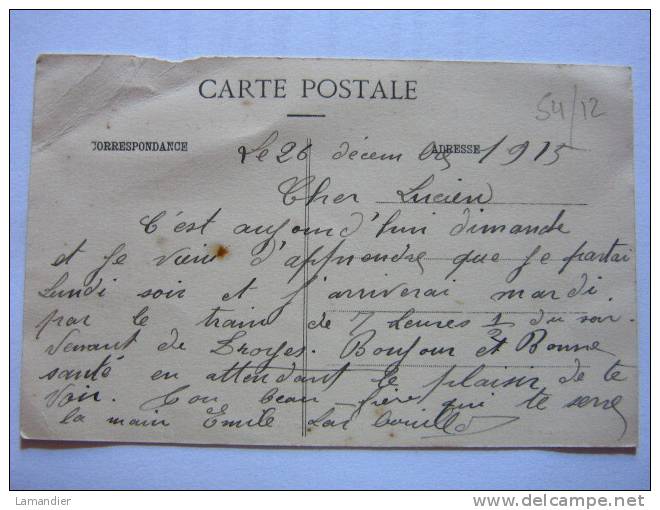 CARTE POSTALE
54/12
CORRESPONDANCE
ADRESSE
Le 26 décembre 1915
Cher Lucien
C'est aujourd'hui dimande
et je vien d'apprendre que je partai
Lundi soir et j'arriverai mardi
par le train de 7 heures 1/2 du soir
Venant de Troyes. Boujour et Bonne
santé en attendant le plaisir de te
Voir. Ton beau frère qui te serre
la main Emile
Lamandier
http://www.delcampe.net